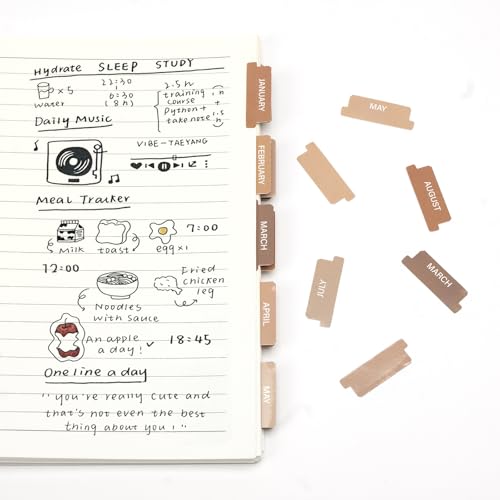 Hydrate SLEEP STUDY
×5
water
22:30
6:30
(8h)
2.5h
training
course
Python +
take note
1h
1.5h
Daily Music
VIBE-TAEYANG
Meal Tracker
Milk
toast
egg×1
7:00
12:00
Noodles
with sauce
Fried
chicken
leg
An apple
a day!
18:45
One line a day
"you're really cute and
that's not even the best
thing about you!"
JANUARY
FEBRUARY
MARCH
APRIL
MAY
MAY
AUGUST
MARCH
JULY